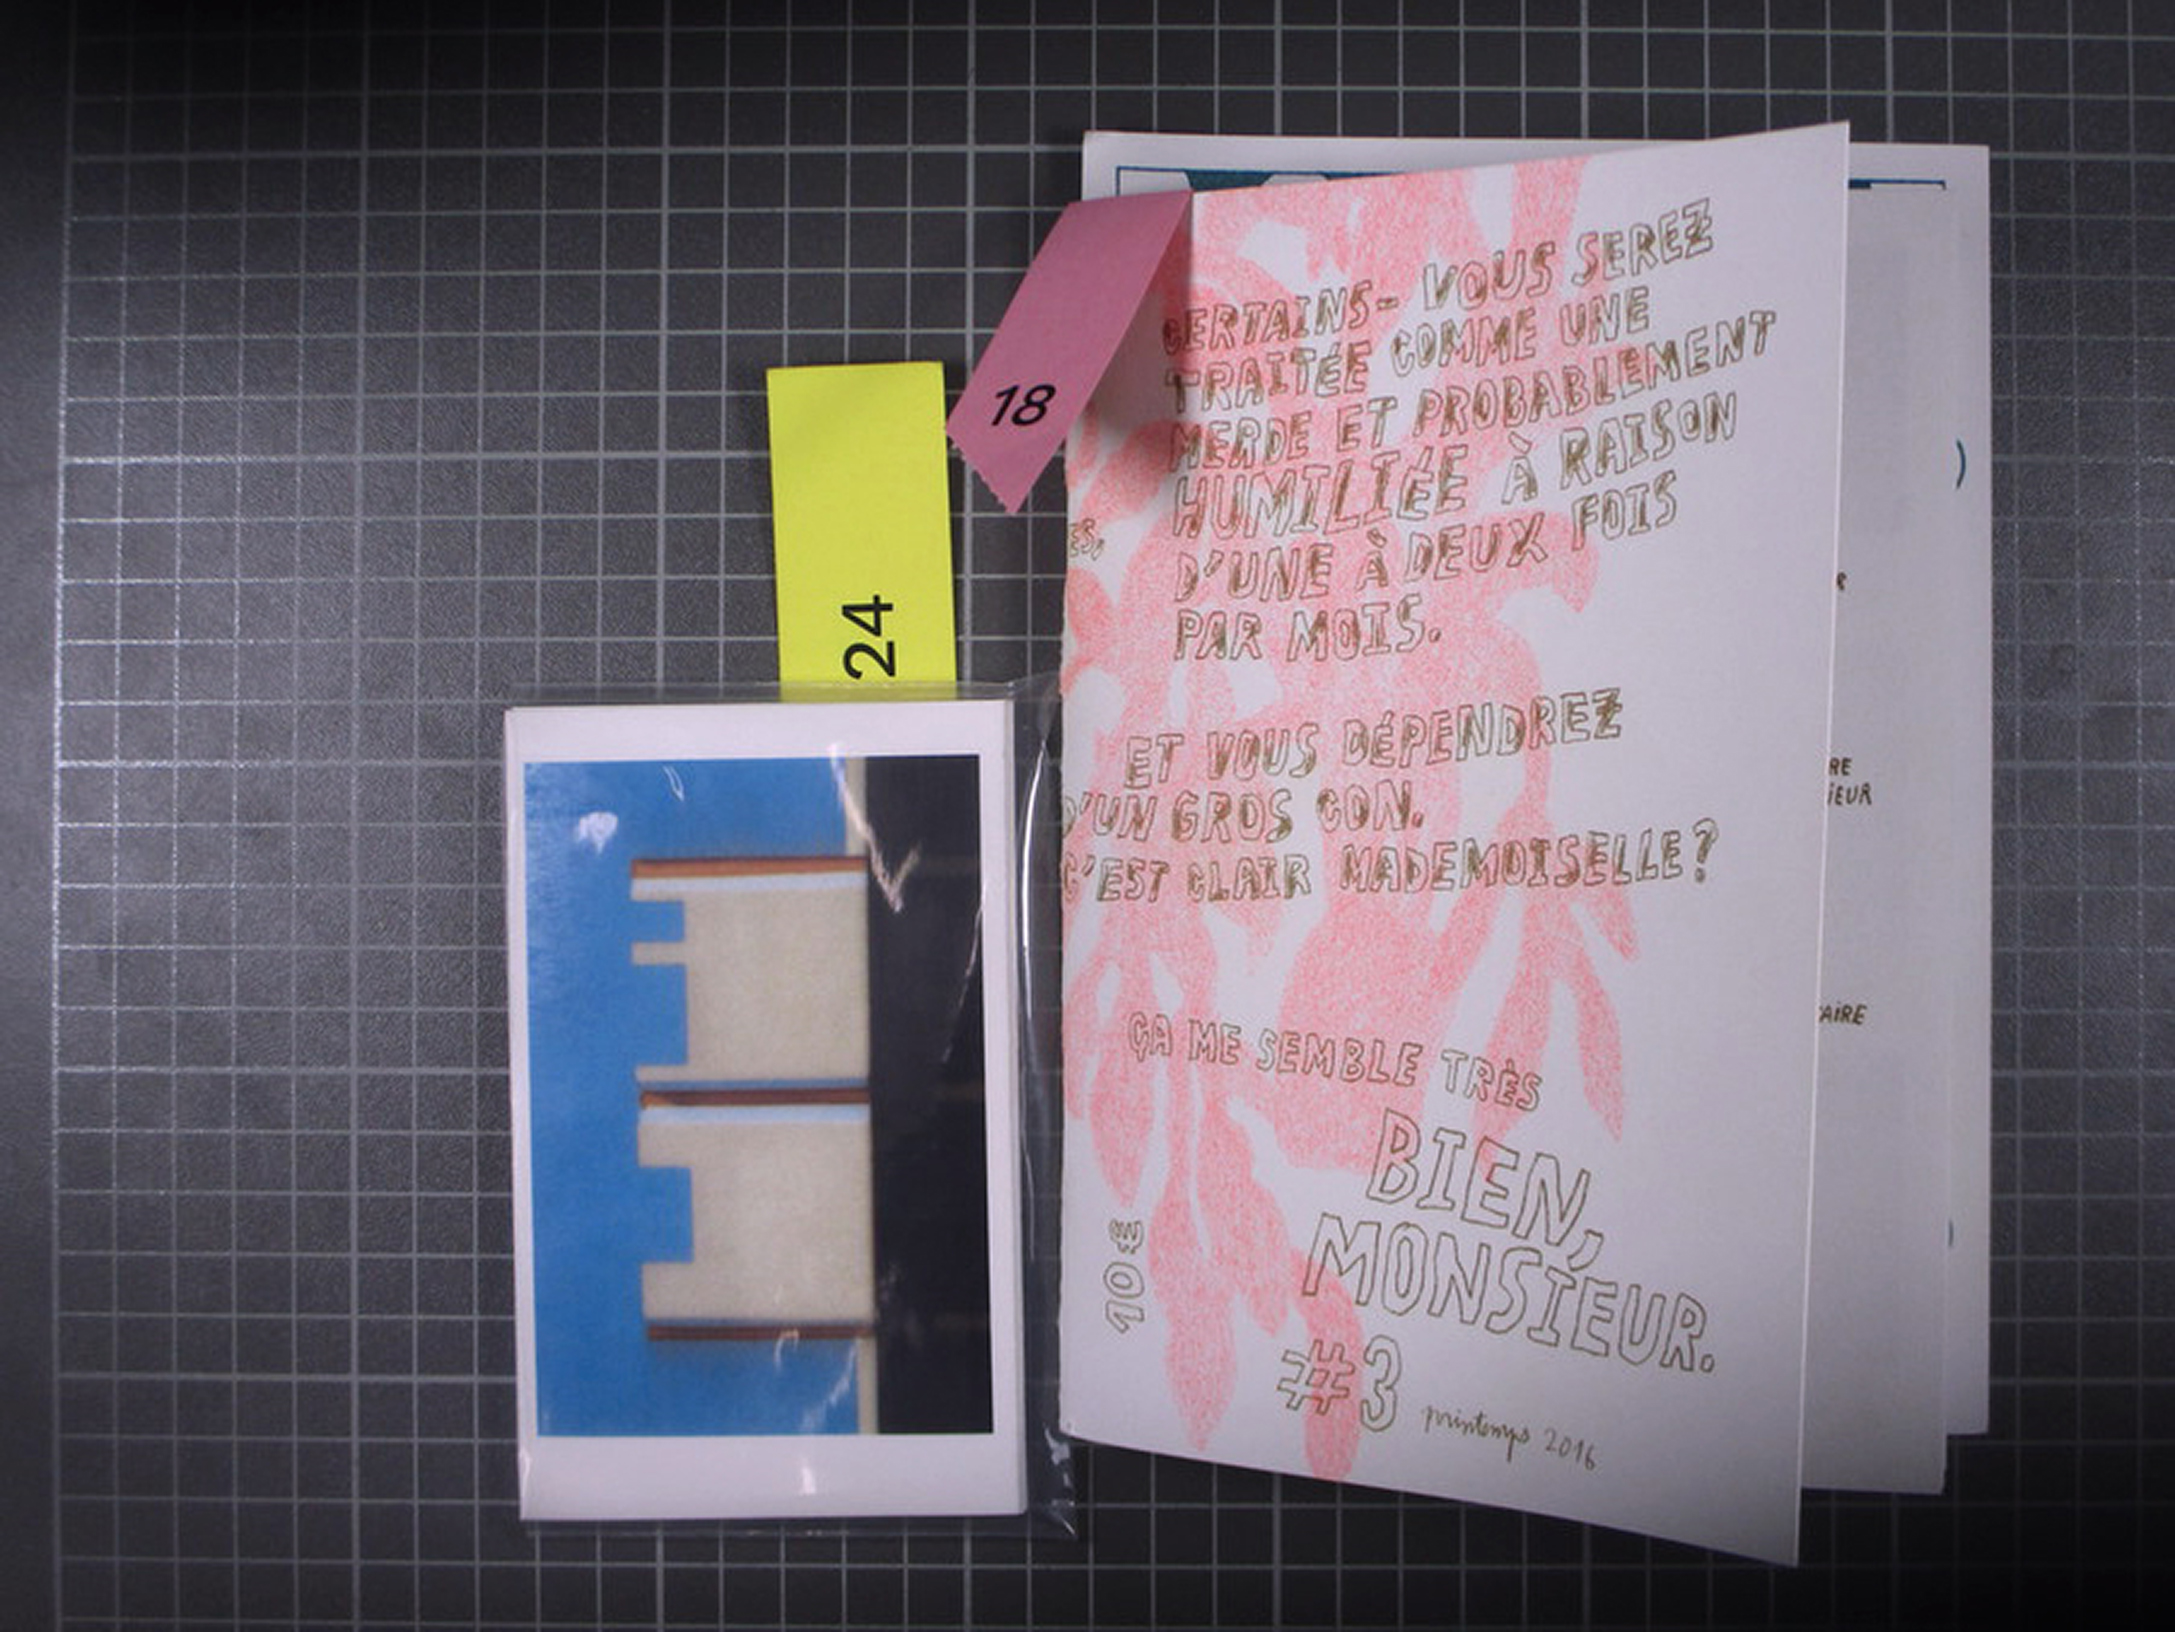 18
24
CERTAINS - VOUS SEREZ
TRAITÉE COMME UNE
MERDE ET PROBABLEMENT
HUMILIÉE À RAISON
D'UNE À DEUX FOIS
PAR MOIS.
ES,
ET VOUS DÉPENDREZ
D'UN GROS CON.
C'EST CLAIR MADEMOISELLE?
ÇA ME SEMBLE TRÈS
BIEN,
MONSIEUR.
#3 printemps 2016
10€
RE
IEUR
AIRE